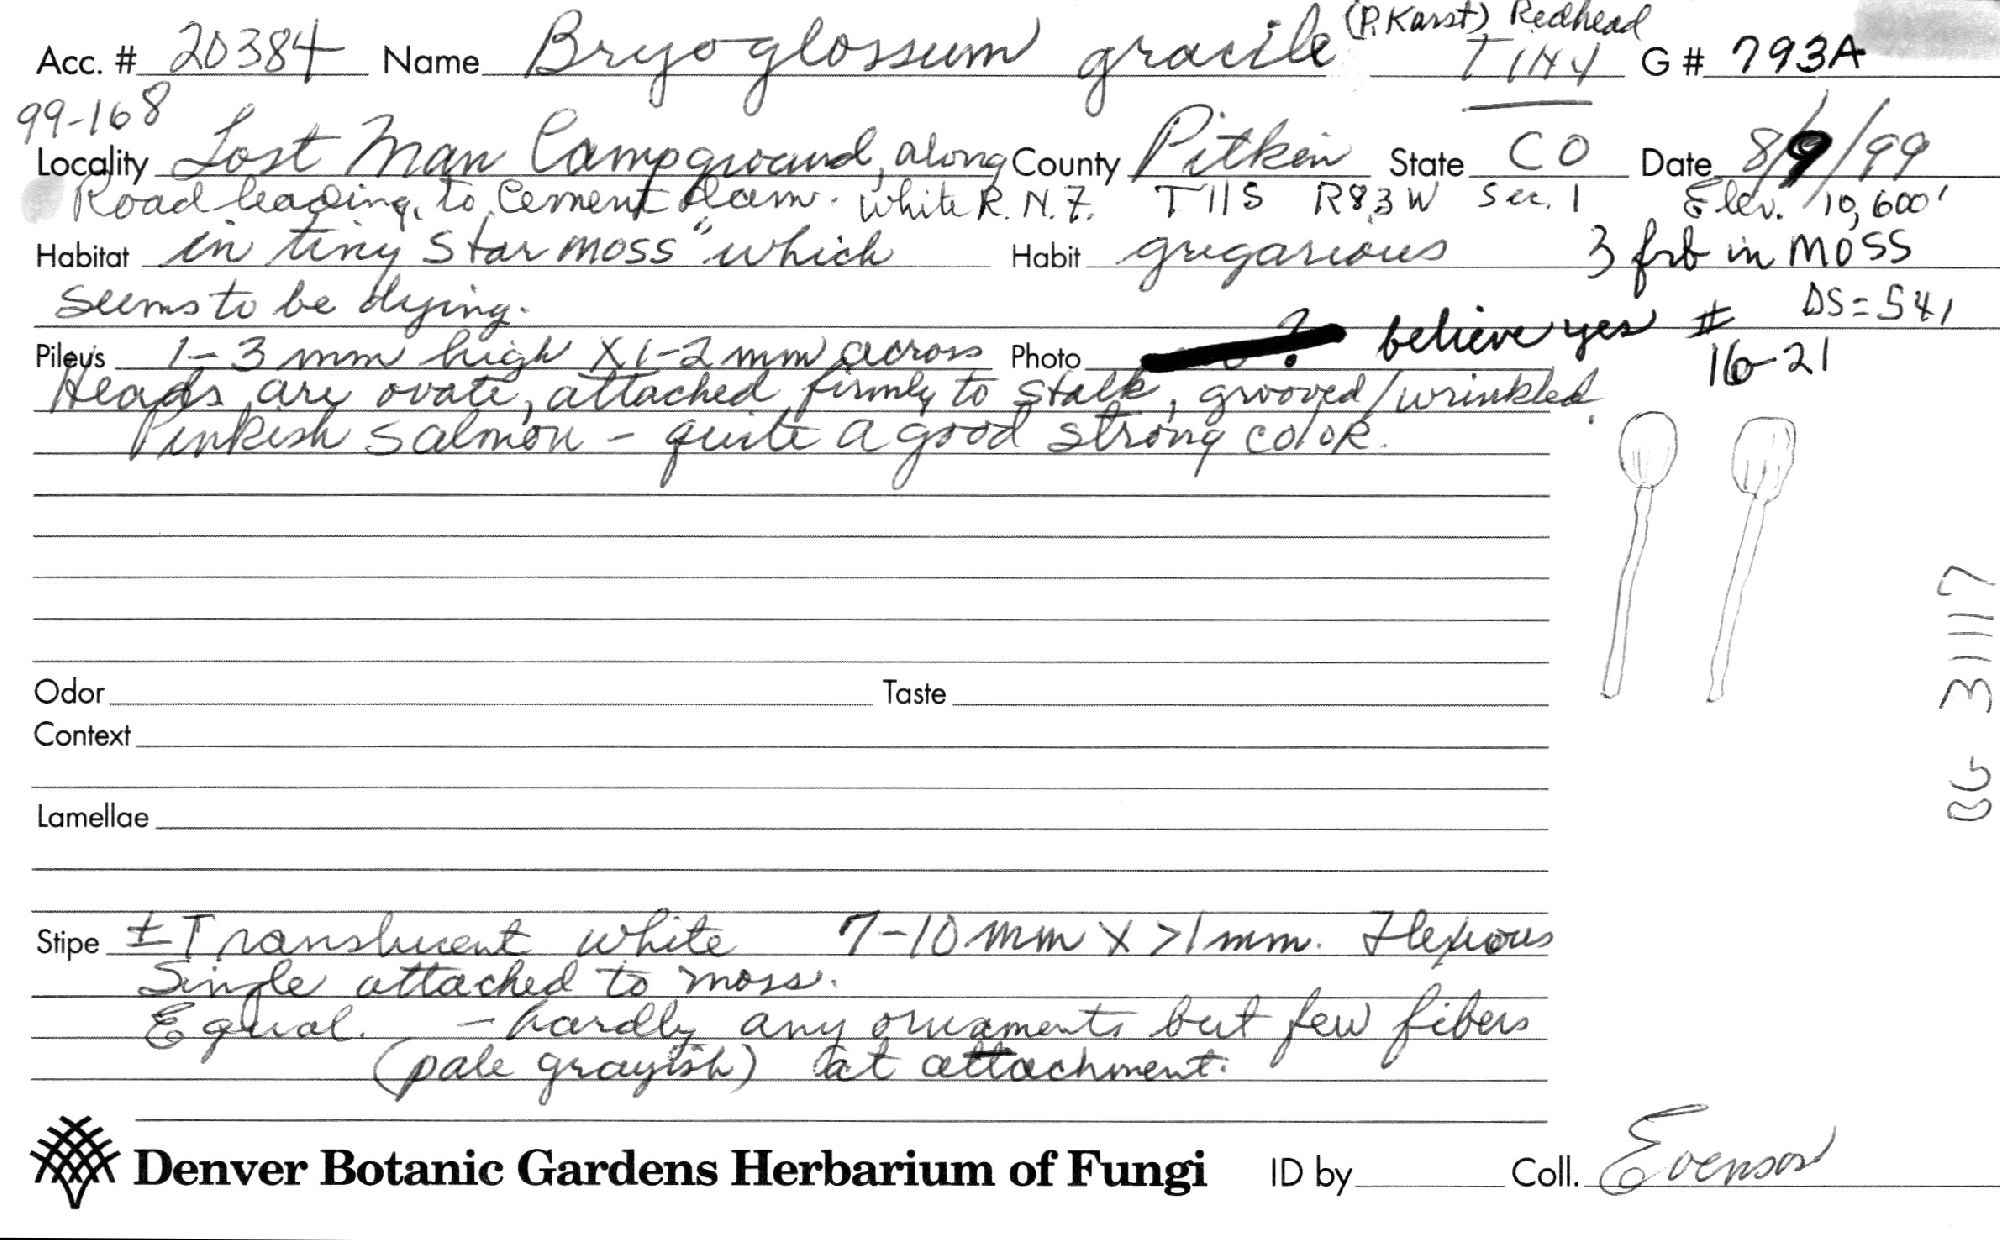 (P. Karst) Redhead
Acc. # 20384 Name Bryoglossum gracile TINY G # 793A
99-168
Locality Lost Man Campground, along County Pitkin State CO Date 8/9/99
Road leading to Cement Dam. White R. N. F. T11S R83W Sec. 1 Elev. 10,600'
Habitat in tiny star moss" which Habit gregarious 3 frb in moss
seems to be dying. DS=541
Pileus 1-3 mm high X 1-2 mm across Photo ? believe yes # 16-21
Heads are ovate, attached firmly to stalk, grooved/wrinkled.
Pinkish salmon - quite a good strong color.
Odor Taste
Context
Lamellae
Stipe ± Translucent white 7-10 mm X >1mm. Flexuous
Single attached to moss.
Equal. - hardly any ornaments but few fibers
(pale grayish) at attachment.
Denver Botanic Gardens Herbarium of Fungi ID by Coll. Evenson
31117